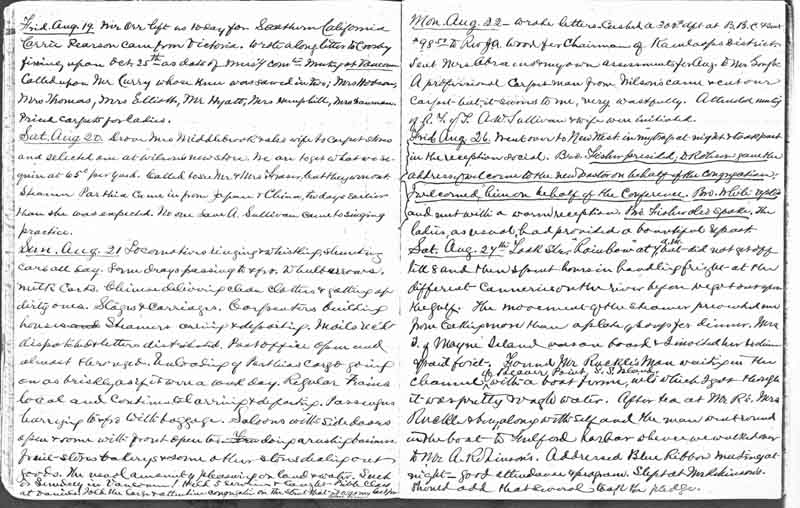 Frid. Aug. 19. Mr Orr left us to day for Southern California
Carrie Pearson came from Victoria. Wrote a long letter to Crosby
fixing upon Oct. 25th as date of Miss'y Com. Meeting at Vancouver
Called upon Mr Curry whose knee was sawed in two; Mrs Hobson,
Mrs Thomas, Mrs Elliott, Mr Hyatt, Mrs Hemphill, Mrs
Priced carpets for ladies.
Sat. Aug 20. Drove Mrs Middlebrook & also wife to carpet stores
and selected one at Wilson's new store. We are to get what we re-
quire at 65¢ per yard. Called to see Mr & Mrs Fraser, but they were out
Steamer Parthia came in from Japan & China, two days earlier
than she was expected. No one save A. Sullivan came to singing
practice.
Sun. Aug. 21 Locomotives ringing & whistling, shunting
cars all day. Some drays passing to & fro. Wheelbarrows.
milk carts. Chinese delivering clean clothes & getting up
dirty ones. Stages & carriages. Carpenters building
houses Steamers arriving & departing. Mails
dispatched & letters distributed. Post office open and
almost thronged. Unloading of Parthia's cargo going
on as briskly as if it were a week day. Regular trains
local and Continental arriving & departing. Passengers
hurrying to & fro with baggage. Saloons with side doors
open & some with front open too doing a rushing business
fruit stores bakerys & some other stores dealing out
goods. The usual amount of pleasuring on land & water. Such
is Sunday in Vancouver! Held 3 services & taught Bible Class
at Told the large & attentive congregation on the street that

Mon. Aug. 22 - Wrote letters. Cashed a 300 dpt at B.B.C. & sent
$98.50 to Rev J.A. Wood for Chairman of Kamloops District
Sent Mrs Abrams my own assessments for Aug. to
A professional Carpet man from Wilson's came & cut our
carpet but, it seems to me, very wastefully. Attended meeting
of R.T. of T. A.W. Sullivan & wife were initiated.
Frid Aug. 26. Went over to New West. in my trap at night & took part
in the reception social. Bro Fisher presided, D. Robson gave the
address of welcome to the new Pastor on behalf of the congregation,
I welcomed him on behalf of the Conference. Bro. White replied
and met with a warm reception. Bro Fisher also spoke. The
ladies, as usual, had provided a bountiful repast
Sat. Aug. 27th Took Str "Rainbow" at 7 a.m. but did not get off
till 8 and then spent hours in handling freight at the
different Canneries on the river before we got out upon
the gulf. The movement of the steamer prevented me
from eating more than a plate of soup for dinner. Mrs
of Mayne Island was on board & I
afraid for it. Found Mr Ruckle's man waiting in the
of Beaver Point, S.S. Island
channel, with a boat for me, into which I got though
it was pretty rough water. After tea at Mr R's. Mrs
Ruckle & boy along with self and the man went round
in the boat to Fulford harbor where we walked over
to Mr A. Robinson's. Addressed Blue Ribbon meeting at
night - good attendance & program. Slept at Mr Robinson's.
Should add that several took the pledge.